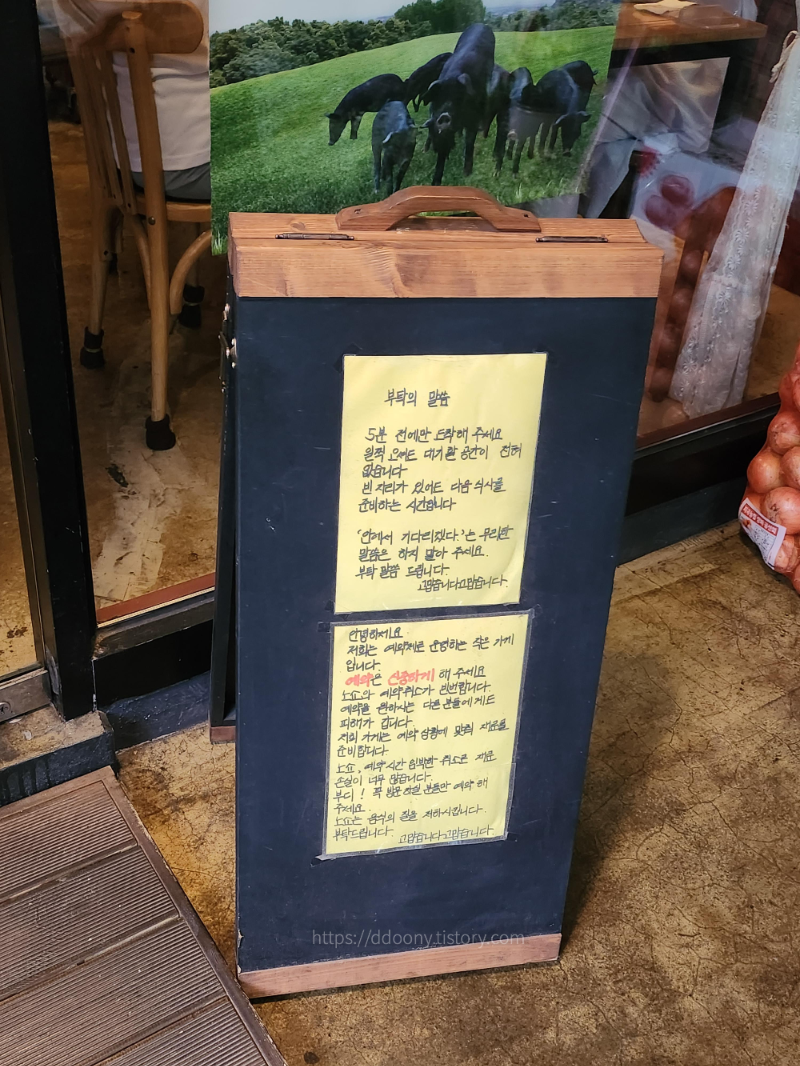 부탁의 말씀
5분 전에만 도착해 주세요
일찍 오셔도 대기할 공간이 전혀
없습니다
빈 자리가 있어도 다음 식사를
준비하는 시간입니다
'안에서 기다리겠다.'는 무리한
말씀은 하지 말아 주세요.
부탁 말씀 드립니다.
고맙습니다고맙습니다.
안녕하세요
저희는 예약제로 운영하는 작은 가게
입니다.
예약은 신중하게 해 주세요
노쇼와 예약취소가 빈번합니다
예약을 원하시는 다른 분들에게도
피해가 갑니다.
저희 가게는 예약 상황에 맞춰 재료를
준비합니다
노쇼, 예약시간 임박한 취소로 재료
손실이 너무 많습니다.
부디! 꼭 방문하실 분들만 예약 해
주세요.
노쇼는 음식의 질을 저하시킵니다.
부탁드립니다. 고맙습니다고맙습니다.
https://ddoony.tistory.com